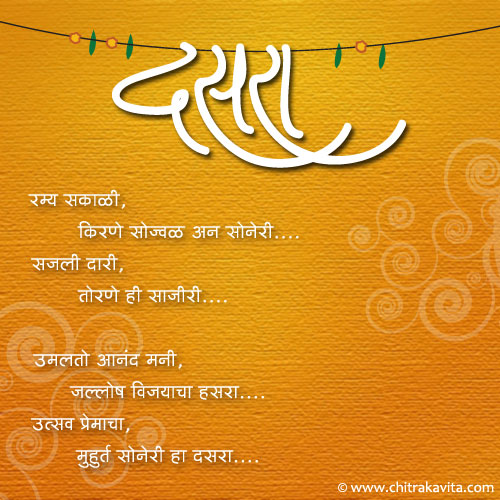 दसरा
रम्य सकाळी,
किरणे सोज्वळ अन सोनेरी....
सजली दारी,
तोरणे ही साजीरी....
उमलतो आनंद मनी,
जल्लोष विजयाचा हसरा....
उत्सव प्रेमाचा,
मुहुर्त सोनेरी हा दसरा....
© www.chitrakavita.com